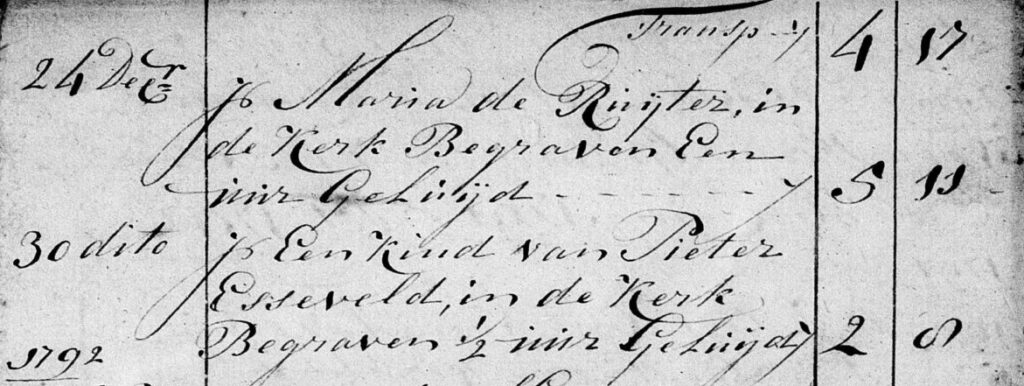 Transp 4 17
24 Decr
p Maria de Ruijter, in
de Kerk Begraven Een
uur Geluijd 5 11
30 dito p Een Kind van Pieter
Esseveld, in de Kerk
Begraven 1/2 uur Geluijd 2 8
1792